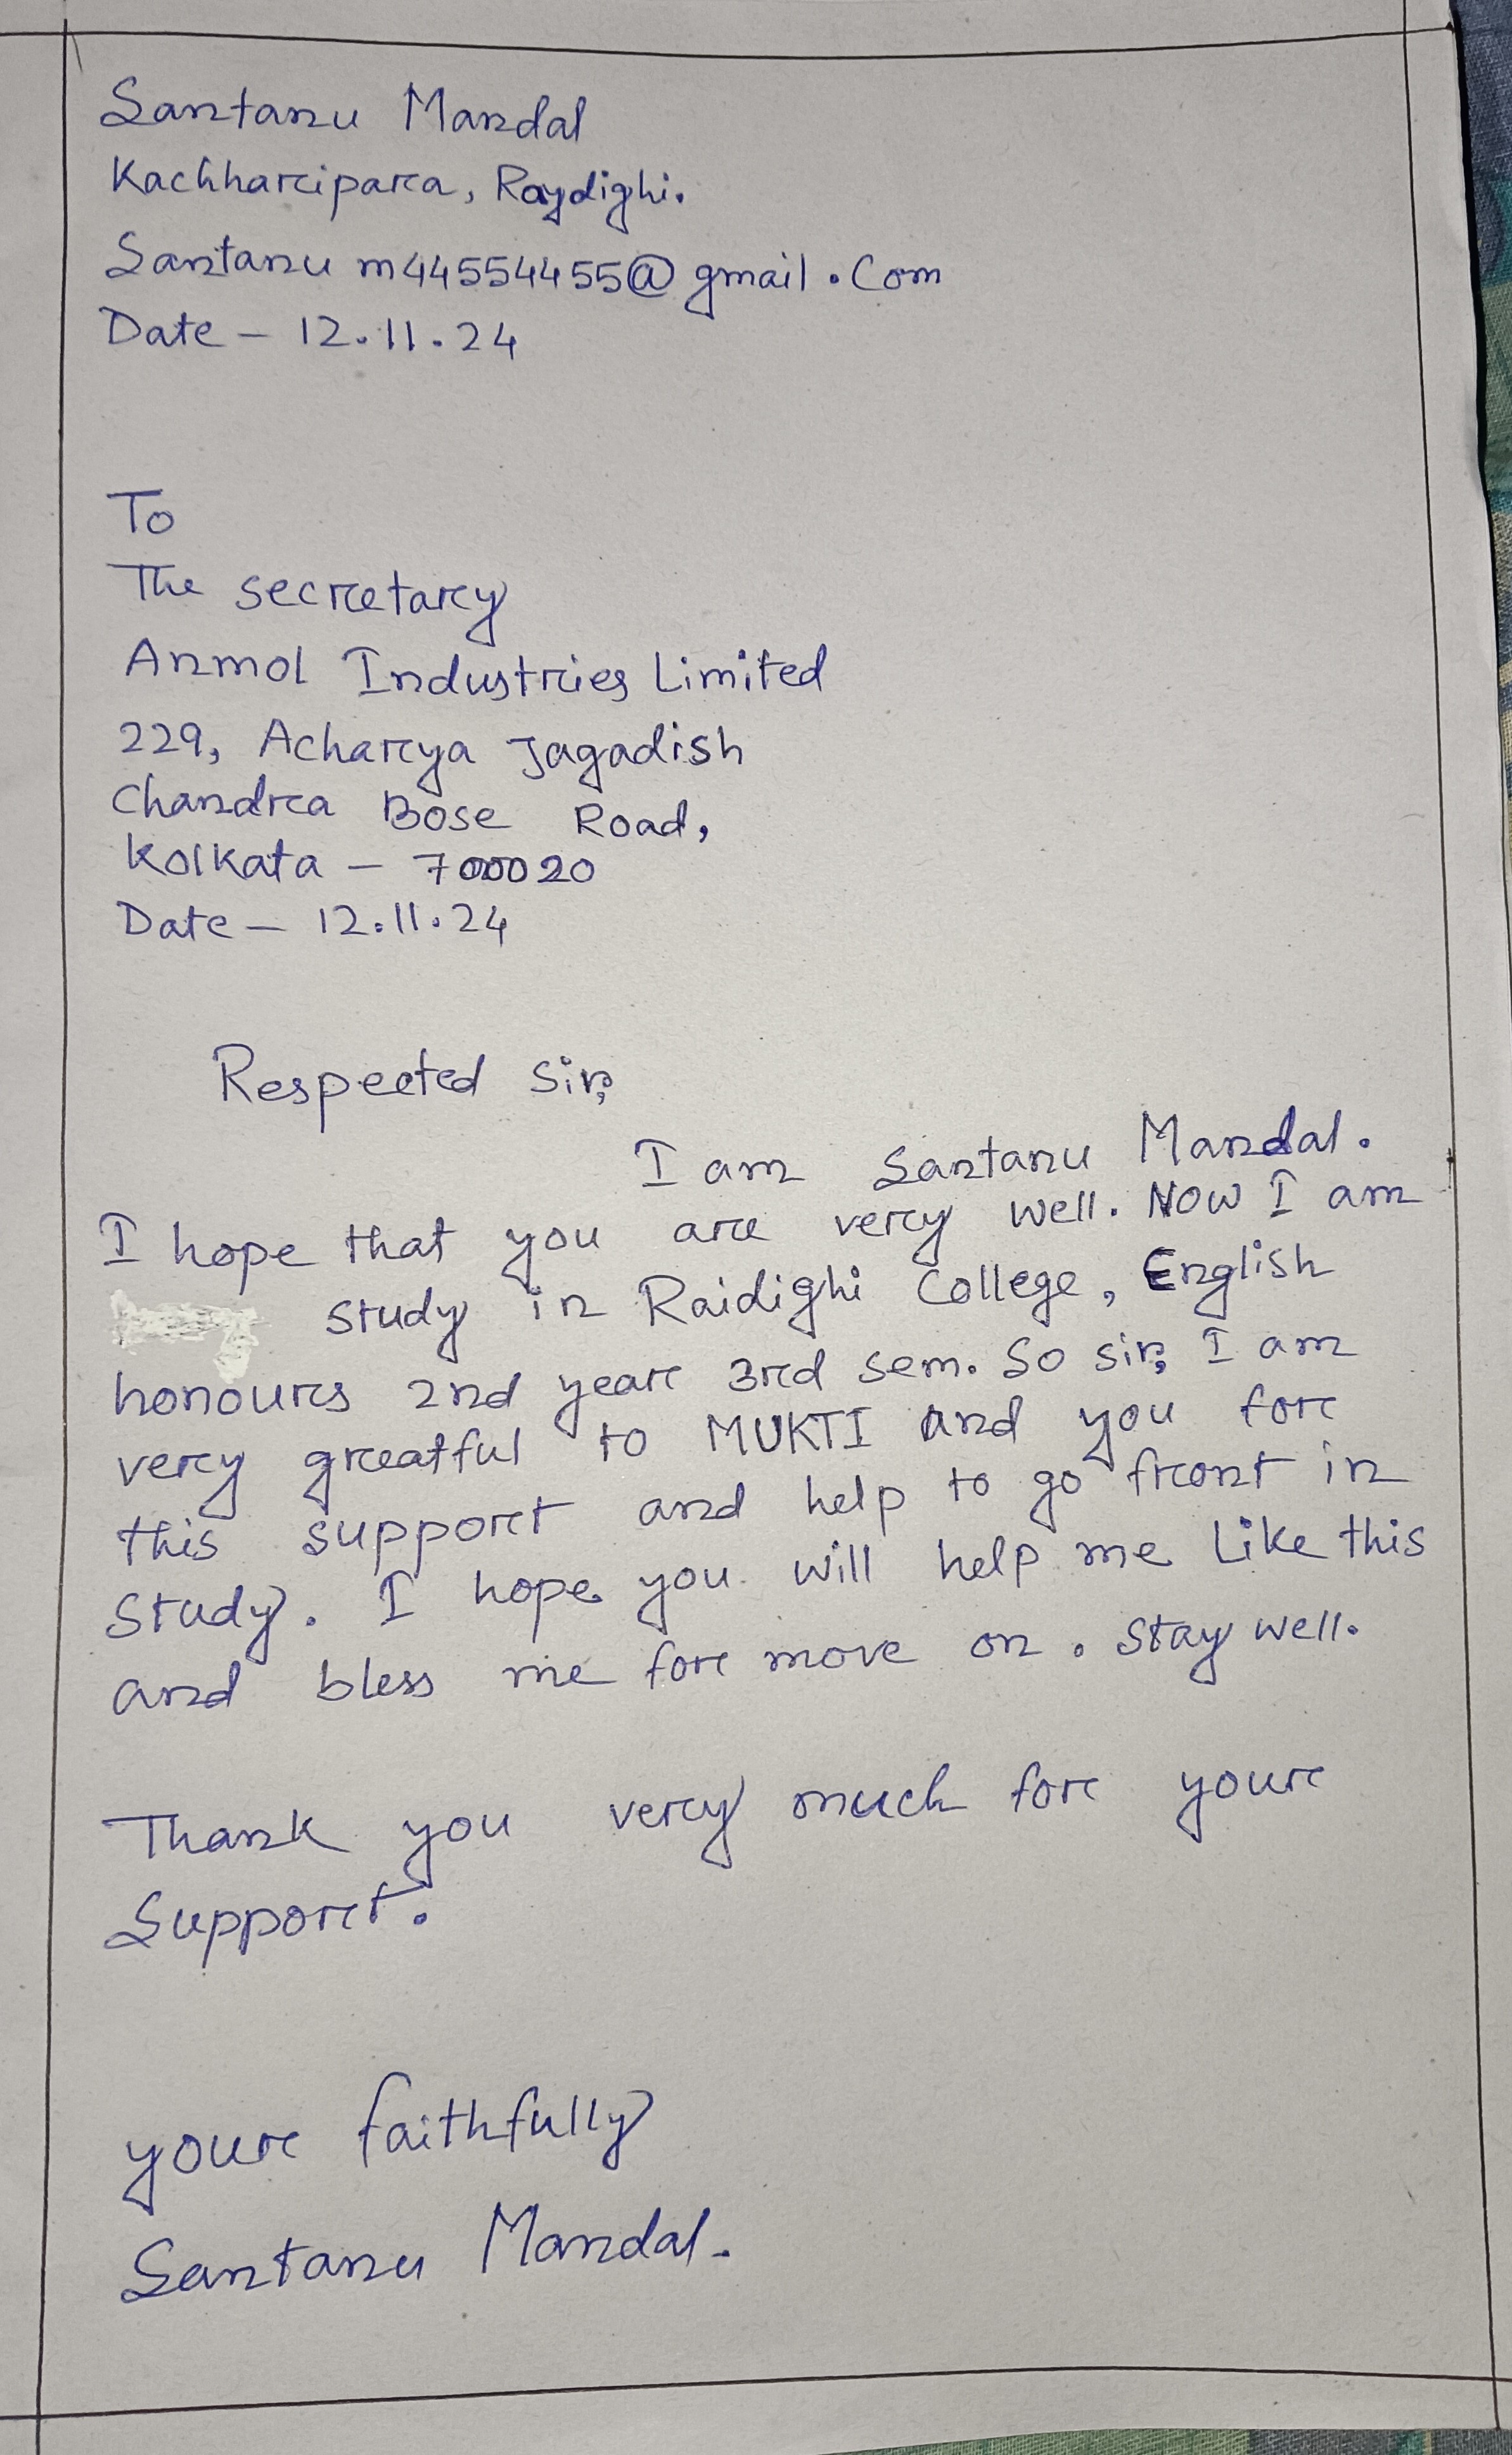 Santanu Mandal
Kachharipara, Raydighi.
Santanu m44554455@gmail.com
Date - 12.11.24
To
The secretary
Anmol Industries Limited
229, Acharya Jagadish
Chandra Bose Road,
Kolkata - 700020
Date - 12.11.24
Respected Sir,
I am Santanu Mandal.
I hope that you are very well. Now I am
study in Raidighi College, English
honours 2nd year 3rd sem. So sir, I am
very greatful to MUKTI and you for
this support and help to go front in
study. I hope you will help me like this
and bless me for move on. Stay well.
Thank you very much for your
Support.
your faithfully
Santanu Mandal.